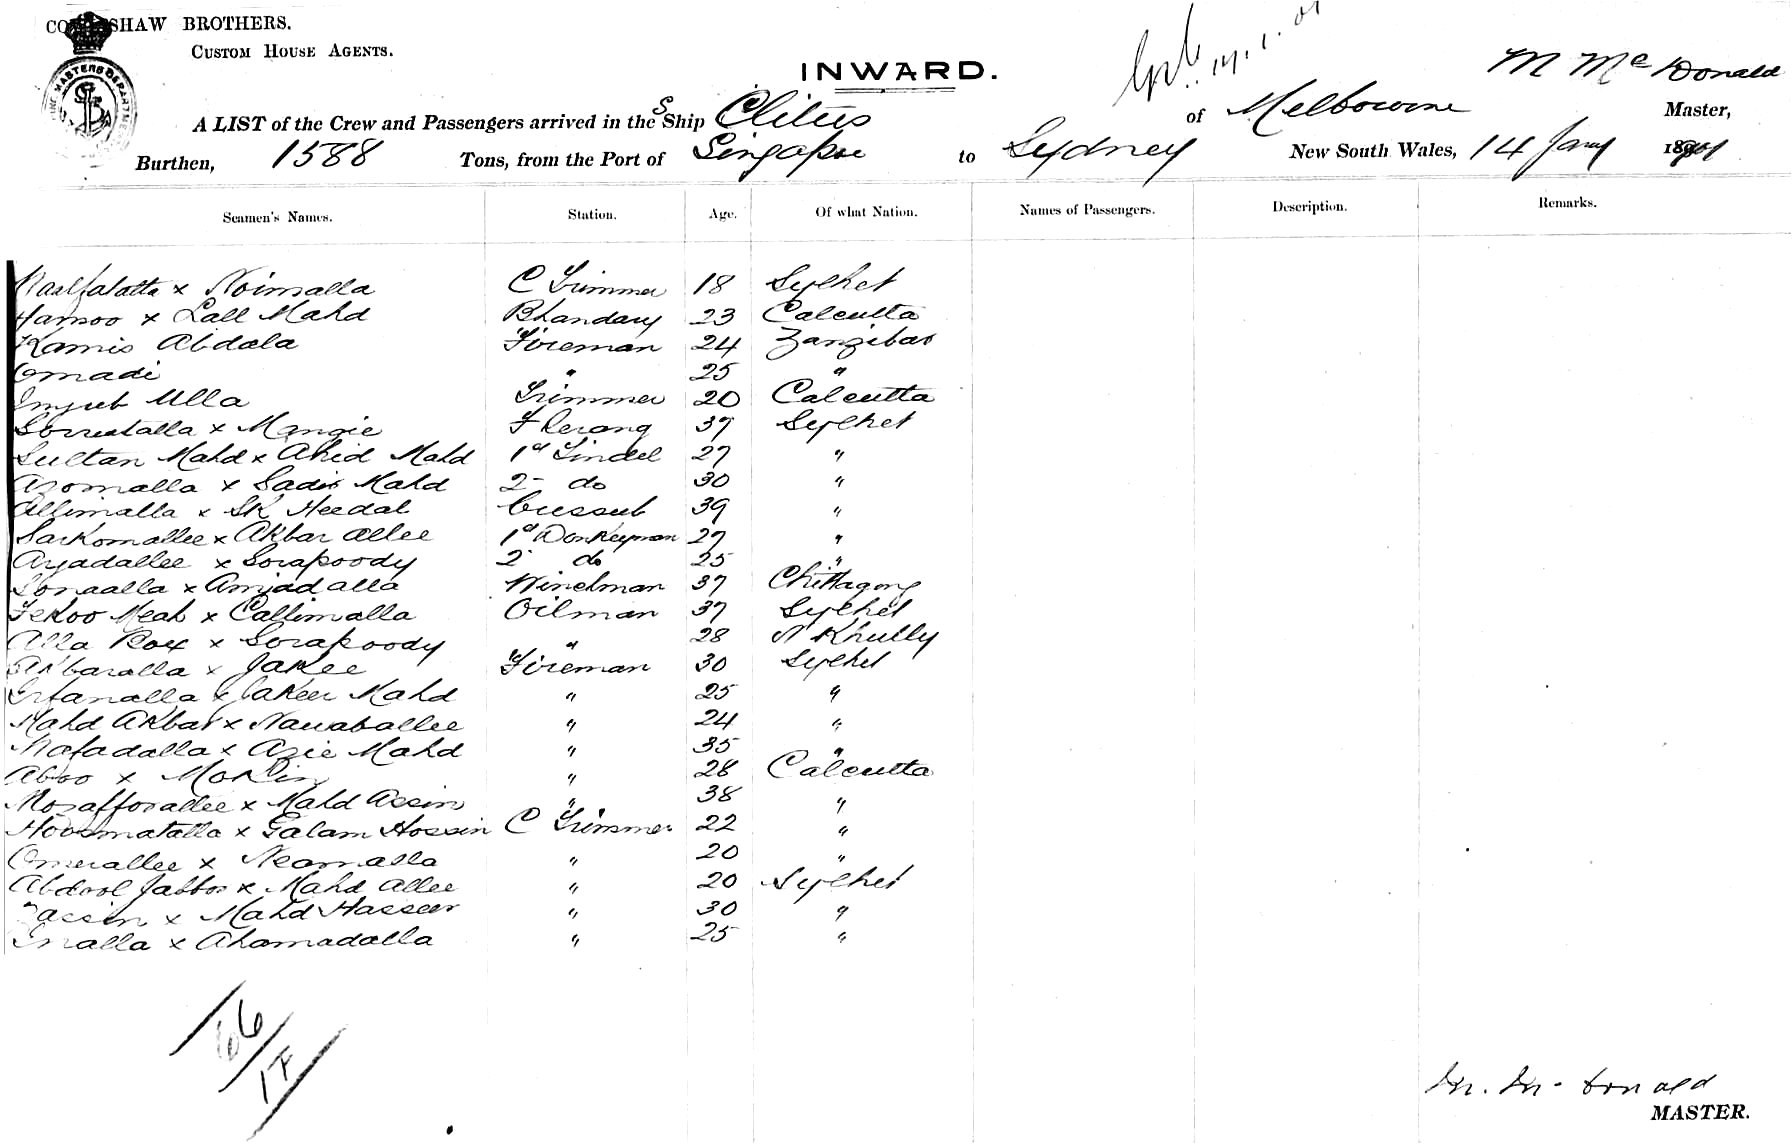 SHAW BROTHERS.
CUSTOM HOUSE AGENTS.
INWARD.
14.1.01
M Mc Donald
A LIST of the Crew and Passengers arrived in the S Ship Clitus of Melbourne Master,
Burthen, 1588 Tons, from the Port of Singapore to Sydney New South Wales, 14 Jany 1901
Seamen's Names. Station. Age. Of what Nation. Names of Passengers. Description. Remarks.
x Noimalla C Trimmer 18 Sylhet
Hamoo x Lall Mahd Bhandary 23 Calcutta
Kamis Abdala Fireman 24 Zanzibar
Omadi " 25 "
Ulla Trimmer 20 Calcutta
x Mangie F Serang 37 Sylhet
Sultan Mahd x Ahid Mahd 1st Tindel 27 "
Asomalla x Sadir Mahd 2- do 30 "
Allimalla x SK Heedal Cussub 39 "
Sarkomallee x Akbar Allee 1st Donkeyman 27 "
Ayadallee x Sorapoody 2- do 25 "
Sonaalla x Amjadalla Winchman 37 Chittagong
Fekoo Meah x Callimalla Oilman 37 Sylhet
Alla Box x Sorapoody " 28 N Khully
Akbaralla x Jakee Fireman 30 Sylhet
Irfanalla x Jakeer Mahd " 25 "
Mahd Akbar x Nawaballee " 24 "
Nafadalla x Azie Mahd " 35 "
Aboo x Mokin " 28 Calcutta
Mozafforallee x Mahd Assin " 38 "
Hossmatalla x Galam Hossin C Trimmer 22 "
Omerallee x Neamalla " 20 "
Abdool Jabbor x Mahd Allee " 20 Sylhet
x Mahd Hasseer " 30 "
Inalla x Ahamadalla " 25 "
66
17
M. Mc Donald
MASTER.